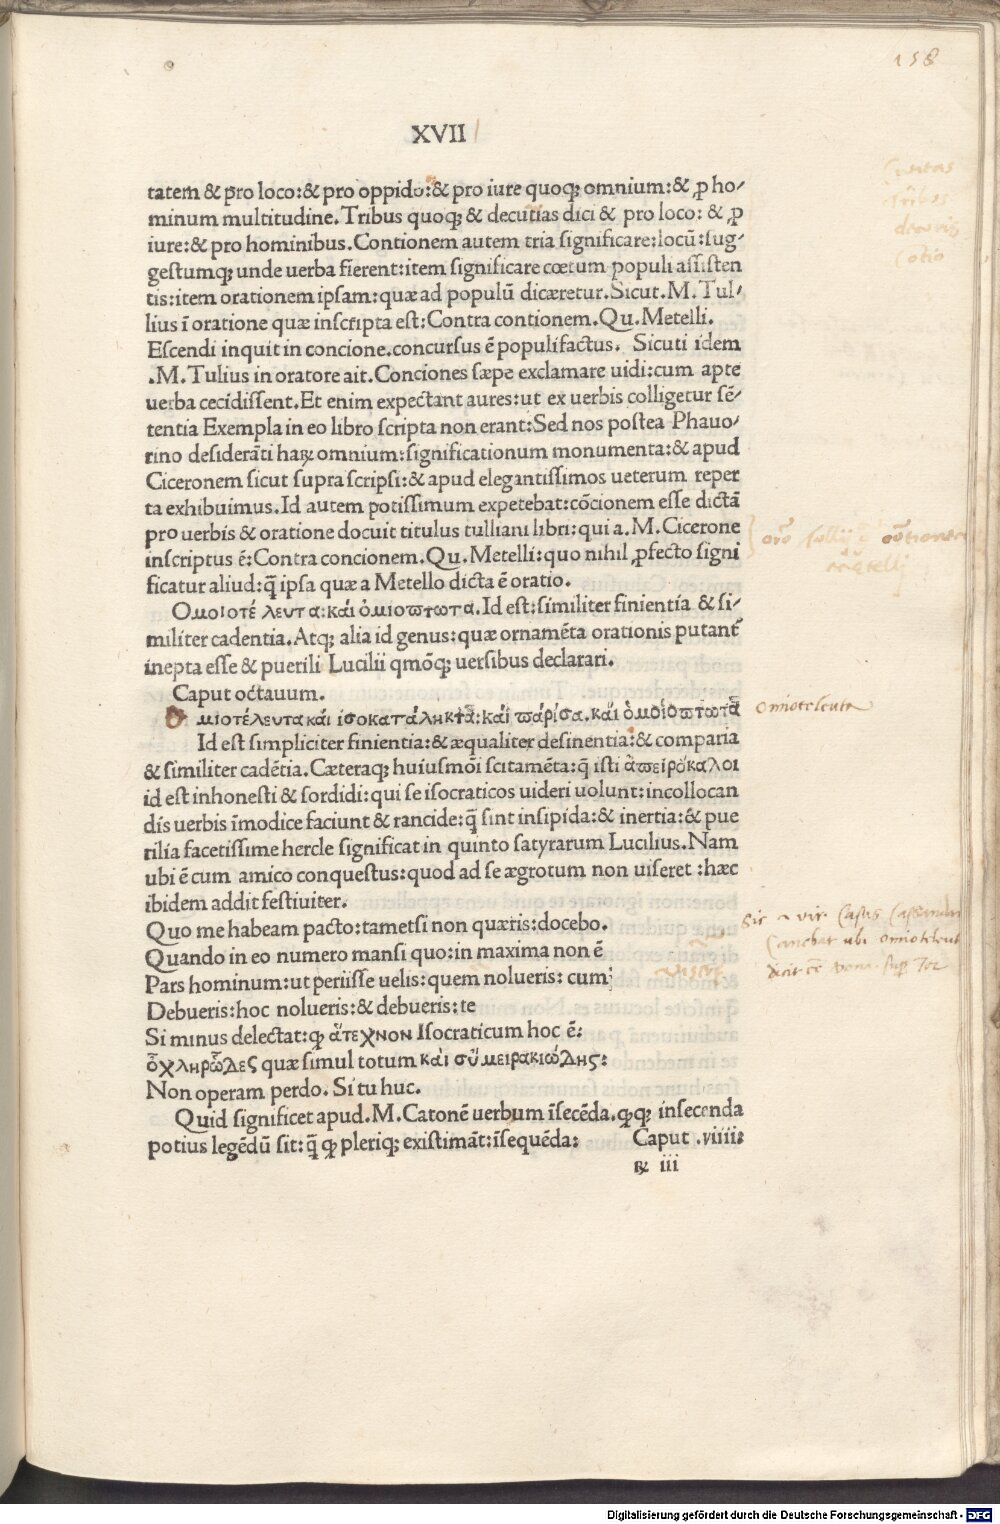 158
XVII
tatem & pro loco:& pro oppido:& pro iure quoqꝫ omnium:& ꝓ ho⸗
minum multitudine.Tribus quoqꝫ & decurias dici & pro loco: & ꝓ
iure:& pro hominibus.Contionem autem tria significare:locū:sug⸗
gestumqꝫ unde uerba fierent:item significare cœtum populi assisten
tis:item orationem ipsam:quæ ad populū dicæretur.Sicut.M.Tul⸗
lius ī oratione quæ inscripta est:Contra contionem.Qu.Metelli.
Escendi inquit in concione.concursus ē populi factus. Sicuti idem
.M.Tulius in oratore ait.Conciones sæpe exclamare uidi:cum apte
uerba cecidissent.Et enim expectant aures:ut ex uerbis colligetur sē⸗
tentia Exempla in eo libro scripta non erant:Sed nos postea Phauo⸗
rino desiderāti haꝝ omnium:significationum monumenta:& apud
Ciceronem sicut supra scripsi:& apud elegantissimos ueterum reper
ta exhibuimus.Id autem potissimum expetebat:cōcionem esse dictā
pro uerbis & oratione docuit titulus tulliani libri:qui a.M.Cicerone
inscriptus ē:Contra concionem.Qu.Metelli:quo nihil ꝓfecto signi
ficatur aliud:q̄ ipsa quæ a Metello dicta ē oratio.
Ομοιοτέ λευτα:και ὁμιοπτωτα.Id est:similiter finientia & si⸗
militer cadentia.Atqꝫ alia id genus:quæ ornamēta orationis putant᷑
inepta esse & puerili Lucilii qmōqꝫ uersibus declarari.
Caput octauum.
Ομιοτέλευτα και ισοκατάληκτα:και πάρισα.και ὁμοιοπτωτα
Id est simpliciter finientia:& æqualiter desinentia:& comparia
& similiter cadētia.Cæteraqꝫ huiusmōi scitamēta:q̄ isti ἀπειρόκαλοι
id est inhonesti & sordidi:qui se isocraticos uideri uolunt:incollocan
dis uerbis īmodice faciunt & rancide:q̄ sint insipida:& inertia:& pue
rilia facetissime hercle significat in quinto satyrarum Lucilius.Nam
ubi ē cum amico conquestus:quod ad se ægrotum non uiseret :hæc
ibidem addit festiuiter.
Quo me habeam pacto:tametsi non quæris:docebo.
Quando in eo numero mansi quo:in maxima non ē
Pars hominum:ut periisse uelis:quem nolueris: cum
Debueris:hoc nolueris:& debueris:te
Si minus delectat:ꝙ ἄτεχνον Isocraticum hoc ē:
ὀχληρῶδες quæ simul totum και σύ μειρακιώδης:
Non operam perdo.Si tu huc.
Quid significet apud.M.Catonē uerbum īsecēda.ꝙqꝫ insecenda
potius legēdū sit:q̄ ꝙ pleriqꝫ existimāt:īsequēda: Caput .viiii:
ꝝ iii
omiotelenta
Digitalisierung gefördert durch die Deutsche Forschungsgemeinschaft - DFG